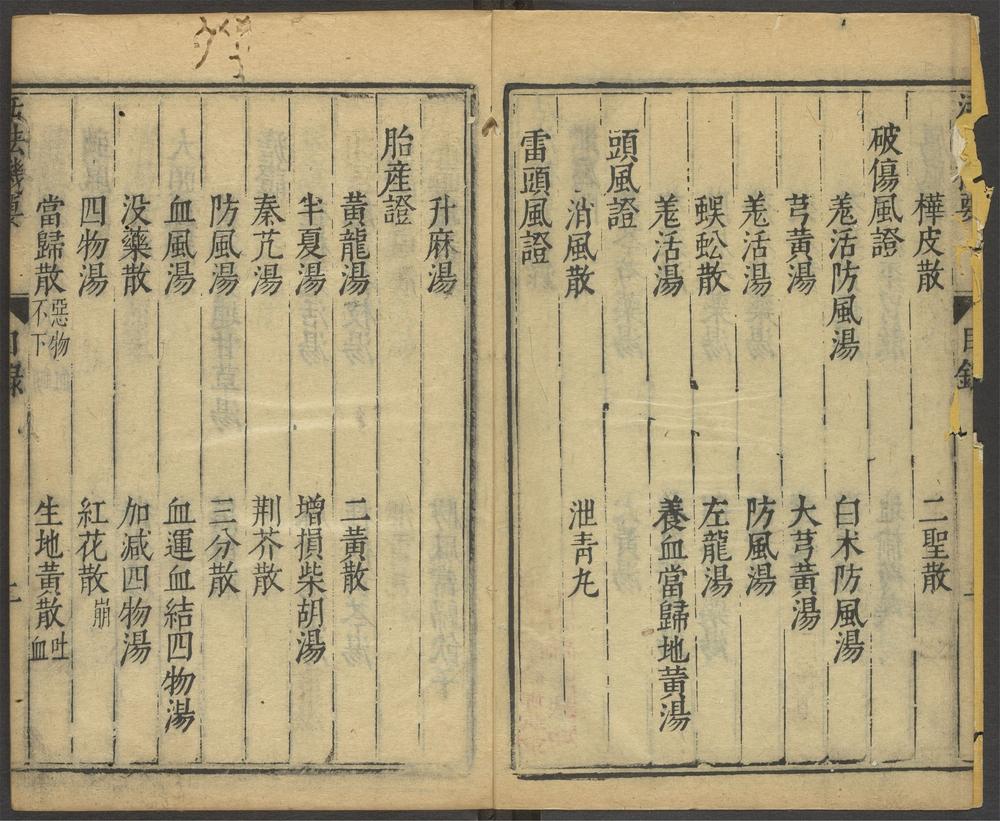 樺皮散 二聖散
破傷風證
羗活防風湯 白术防風湯
芎黃湯 大芎黃湯
羗活湯 防風湯
蜈蚣散 左龍湯
羗活湯 養血當歸地黃湯
頭風證
消風散 泄靑丸
雷頭風證
升麻湯
胎產證
黃龍湯 二黃散
半夏湯 增損柴胡湯
秦艽湯 荆芥散
防風湯 三分散
血風湯 血運血結四物湯
没藥散 加减四物湯
四物湯 紅花散崩
當歸散惡物不下 生地黃散吐血
法機要 目錄